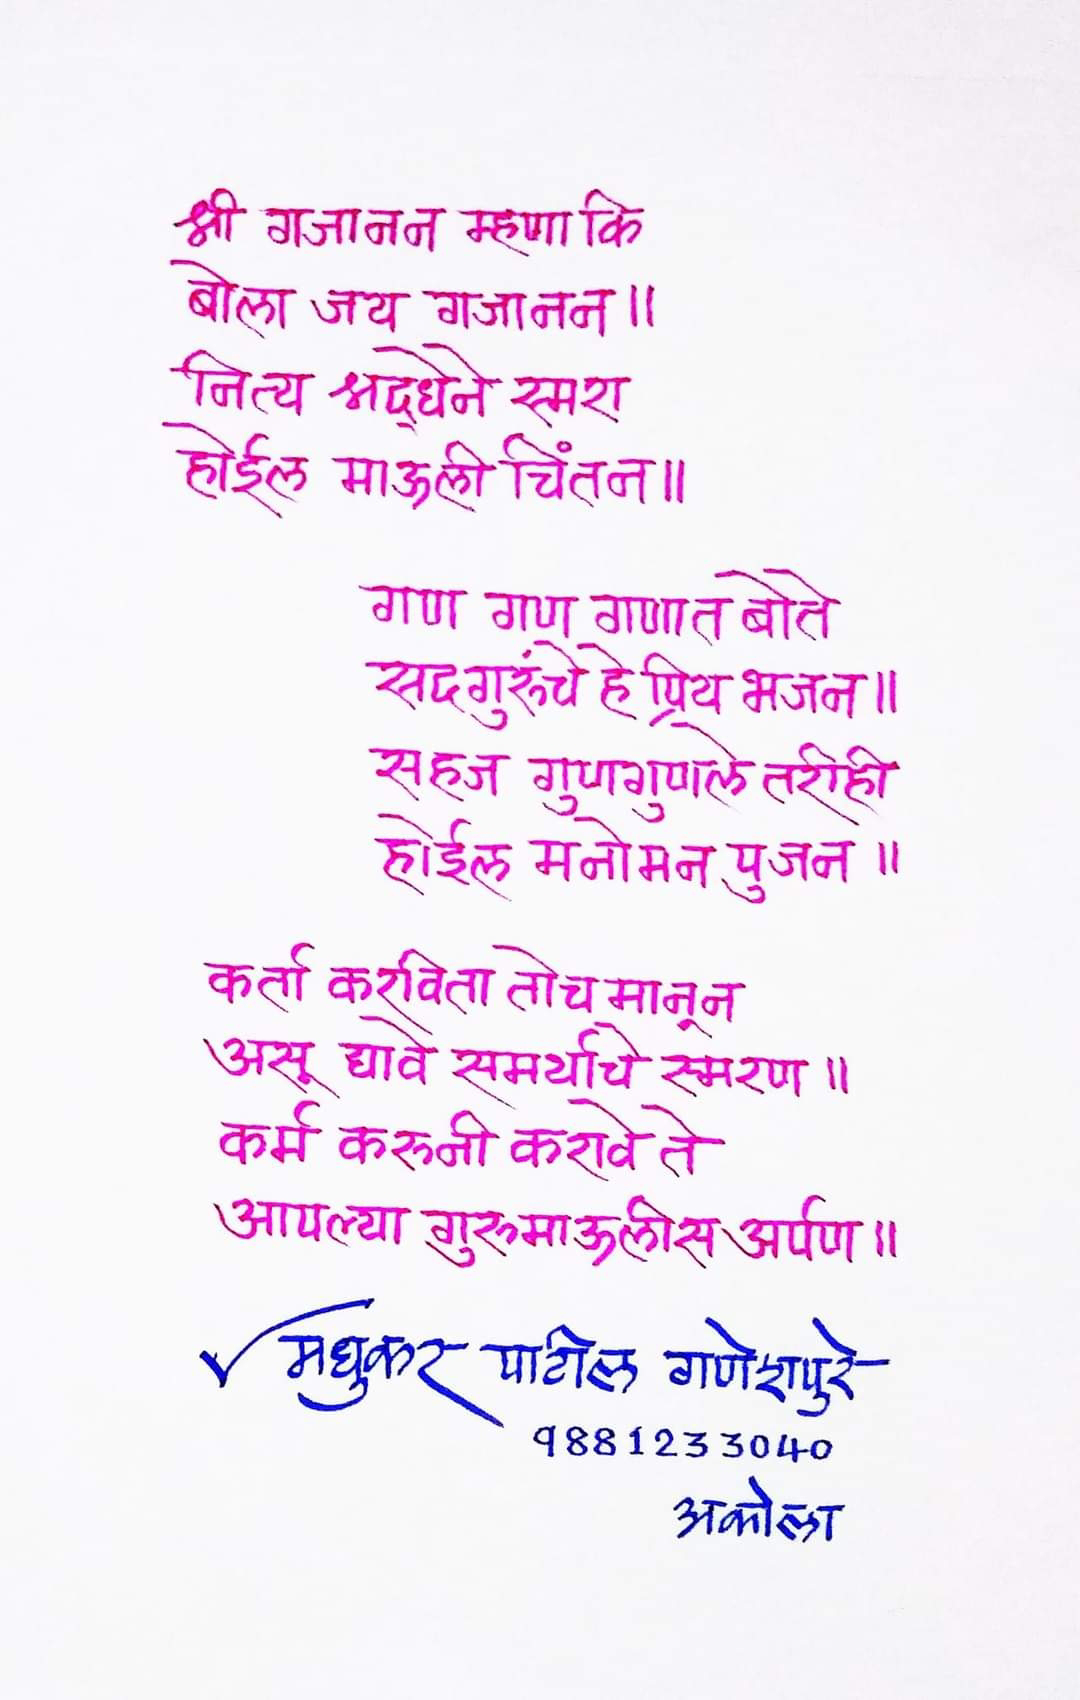 श्री गजानन म्हणा कि
बोला जय गजानन॥
नित्य श्रद्धेने स्मरा
होईल माऊली चिंतन॥
गण गण गणात बोते
सद्गुरुंचे हे प्रिय भजन॥
सहज गुणगुणले तरीही
होईल मनोमन पुजन॥
कर्ता करविता तोच मानून
असू द्यावे समर्थाचे स्मरण॥
कर्म करुनी करावे ते
आपल्या गुरुमाऊलीस अर्पण॥
मधुकर पाटील गणेशपुरे
9881233040
अकोला